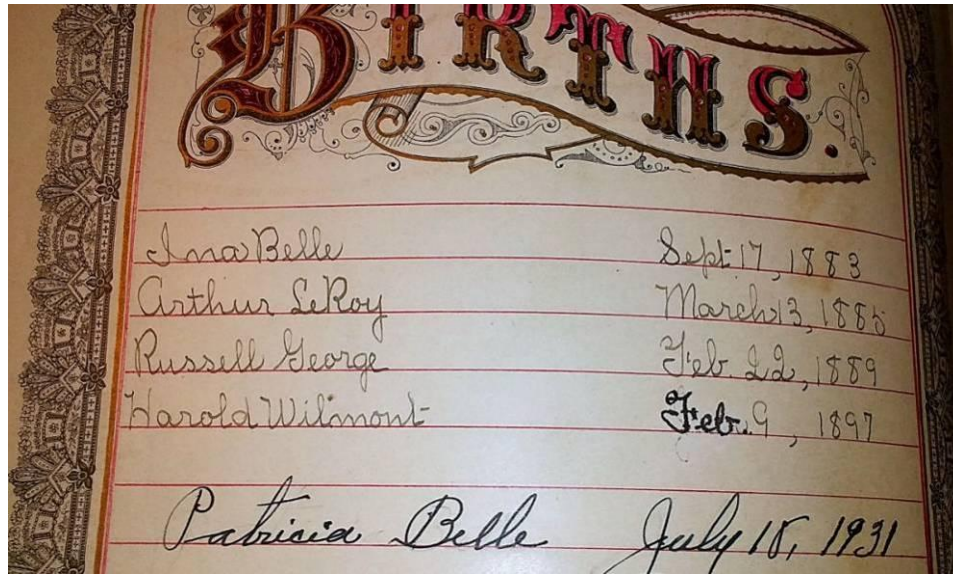 BIRTHS.
Ina Belle Sept. 17, 1883
Arthur LeRoy March 13, 1885
Russell George Feb. 22, 1889
Harold Wilmont Feb. 9, 1897
Patricia Belle July 18, 1931